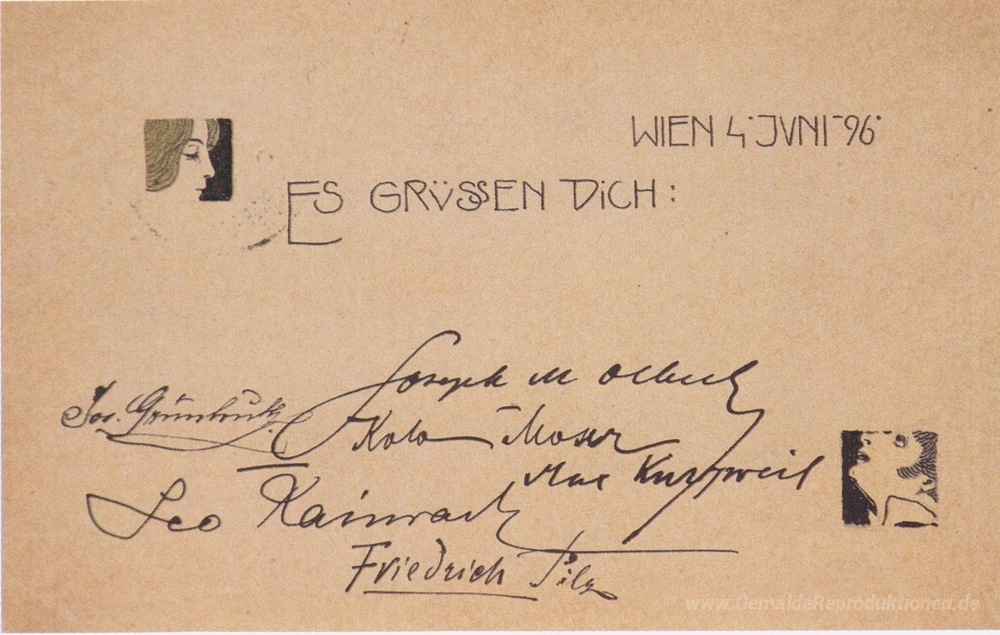 WIEN 4. JVNI 96.
ES GRÜSSEN DICH:
Joseph M Olbrich
Jos.
Kolo Moser
Max Kurzweil
Leo Kainradl
Friedrich Pilz
www.GemaldeReproduktionen.de